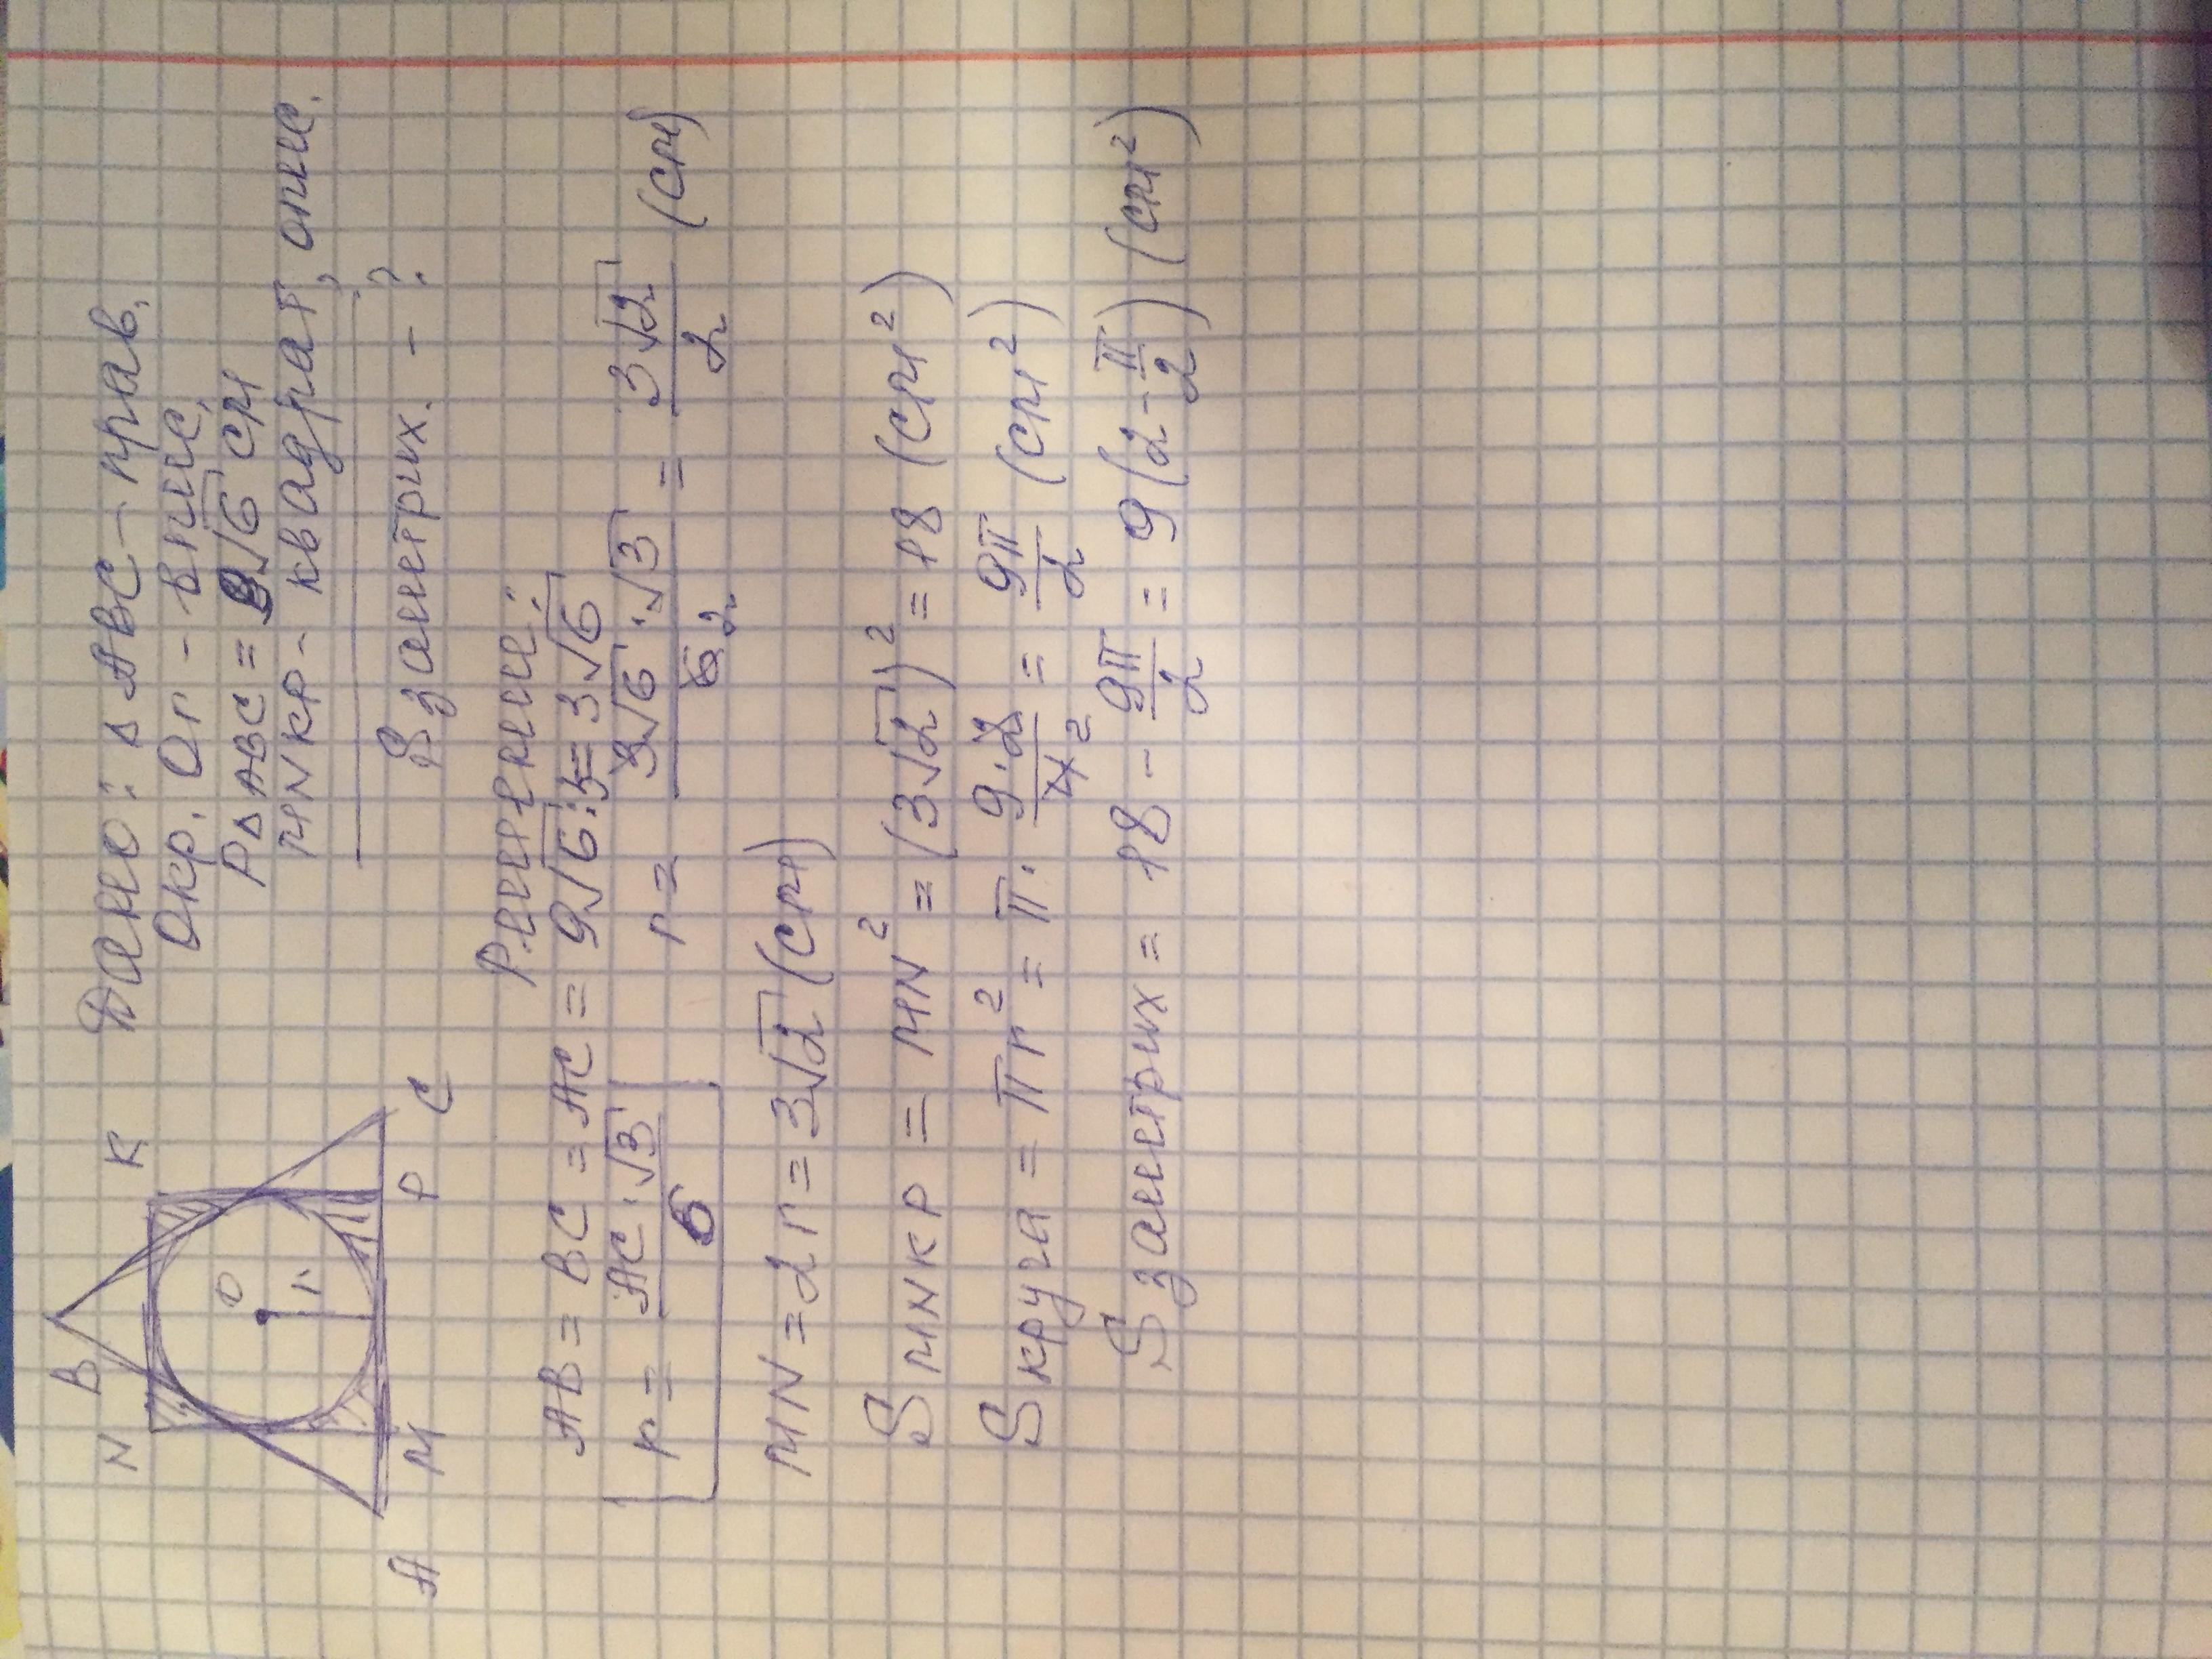 Дано: Δ ABC - прав.
Окр. Or - впис.
P Δ ABC = 9√6 см
MNKP - квадрат, опис.
S заштрих. - ?
N B K
O
r
A M P C
Решение:
AB = BC = AC = 9√6 : 3 = 3√6
r = AC · √3 / 6
r = 3√6 · √3 / 6 2 = 3√2 / 2 (см)
MN = 2r = 3√2 (см)
S MNKP = MN² = (3√2)² = 18 (см²)
S круга = πr² = π · 9 · 2 / 4 2 = 9π / 2 (см²)
S заштрих = 18 - 9π / 2 = 9(2 - π / 2) (см²)